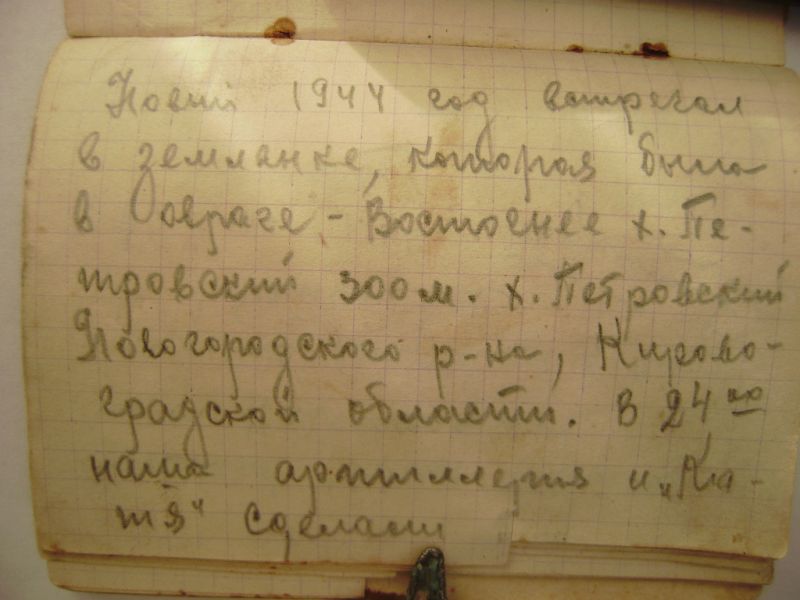 Новый 1944 год встречал
в землянке, которая была
в овраге - Восточнее х. Пе-
тровский 300 м. х. Петровский
Новогородского р-на, Кирово-
градской области. В 24 00
наша артиллерия и „Ка-
тя“ сделали